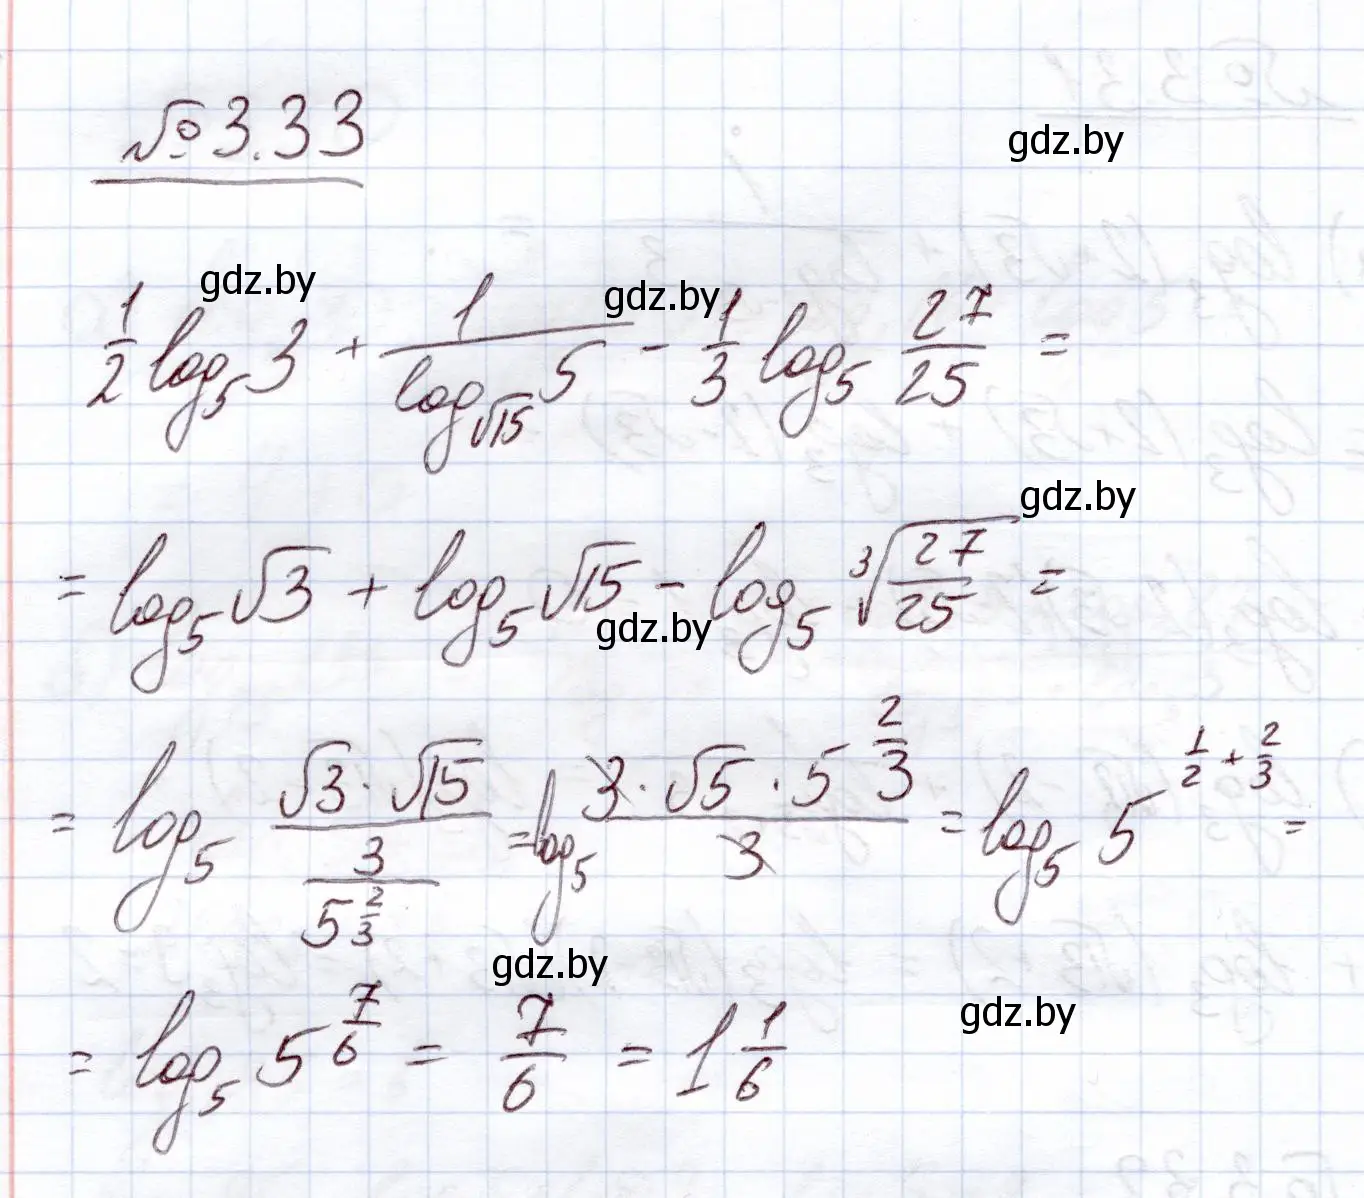 № 3.33
gdz.by
gdz.by gdz.by
1/2 log₅ 3 + 1/(log_√15 5) - 1/3 log₅ 27/25 =
gdz.by
= log₅ √3 + log₅ √15 - log₅ ∛(27/25) =
gdz.by
= log₅ (√3 · √15)/(3/5^(2/3)) = log₅ (3 · √5 · 5^(2/3))/3 = log₅ 5^(1/2 + 2/3) =
gdz.by
gdz.by
= log₅ 5^(7/6) = 7/6 = 1 1/6